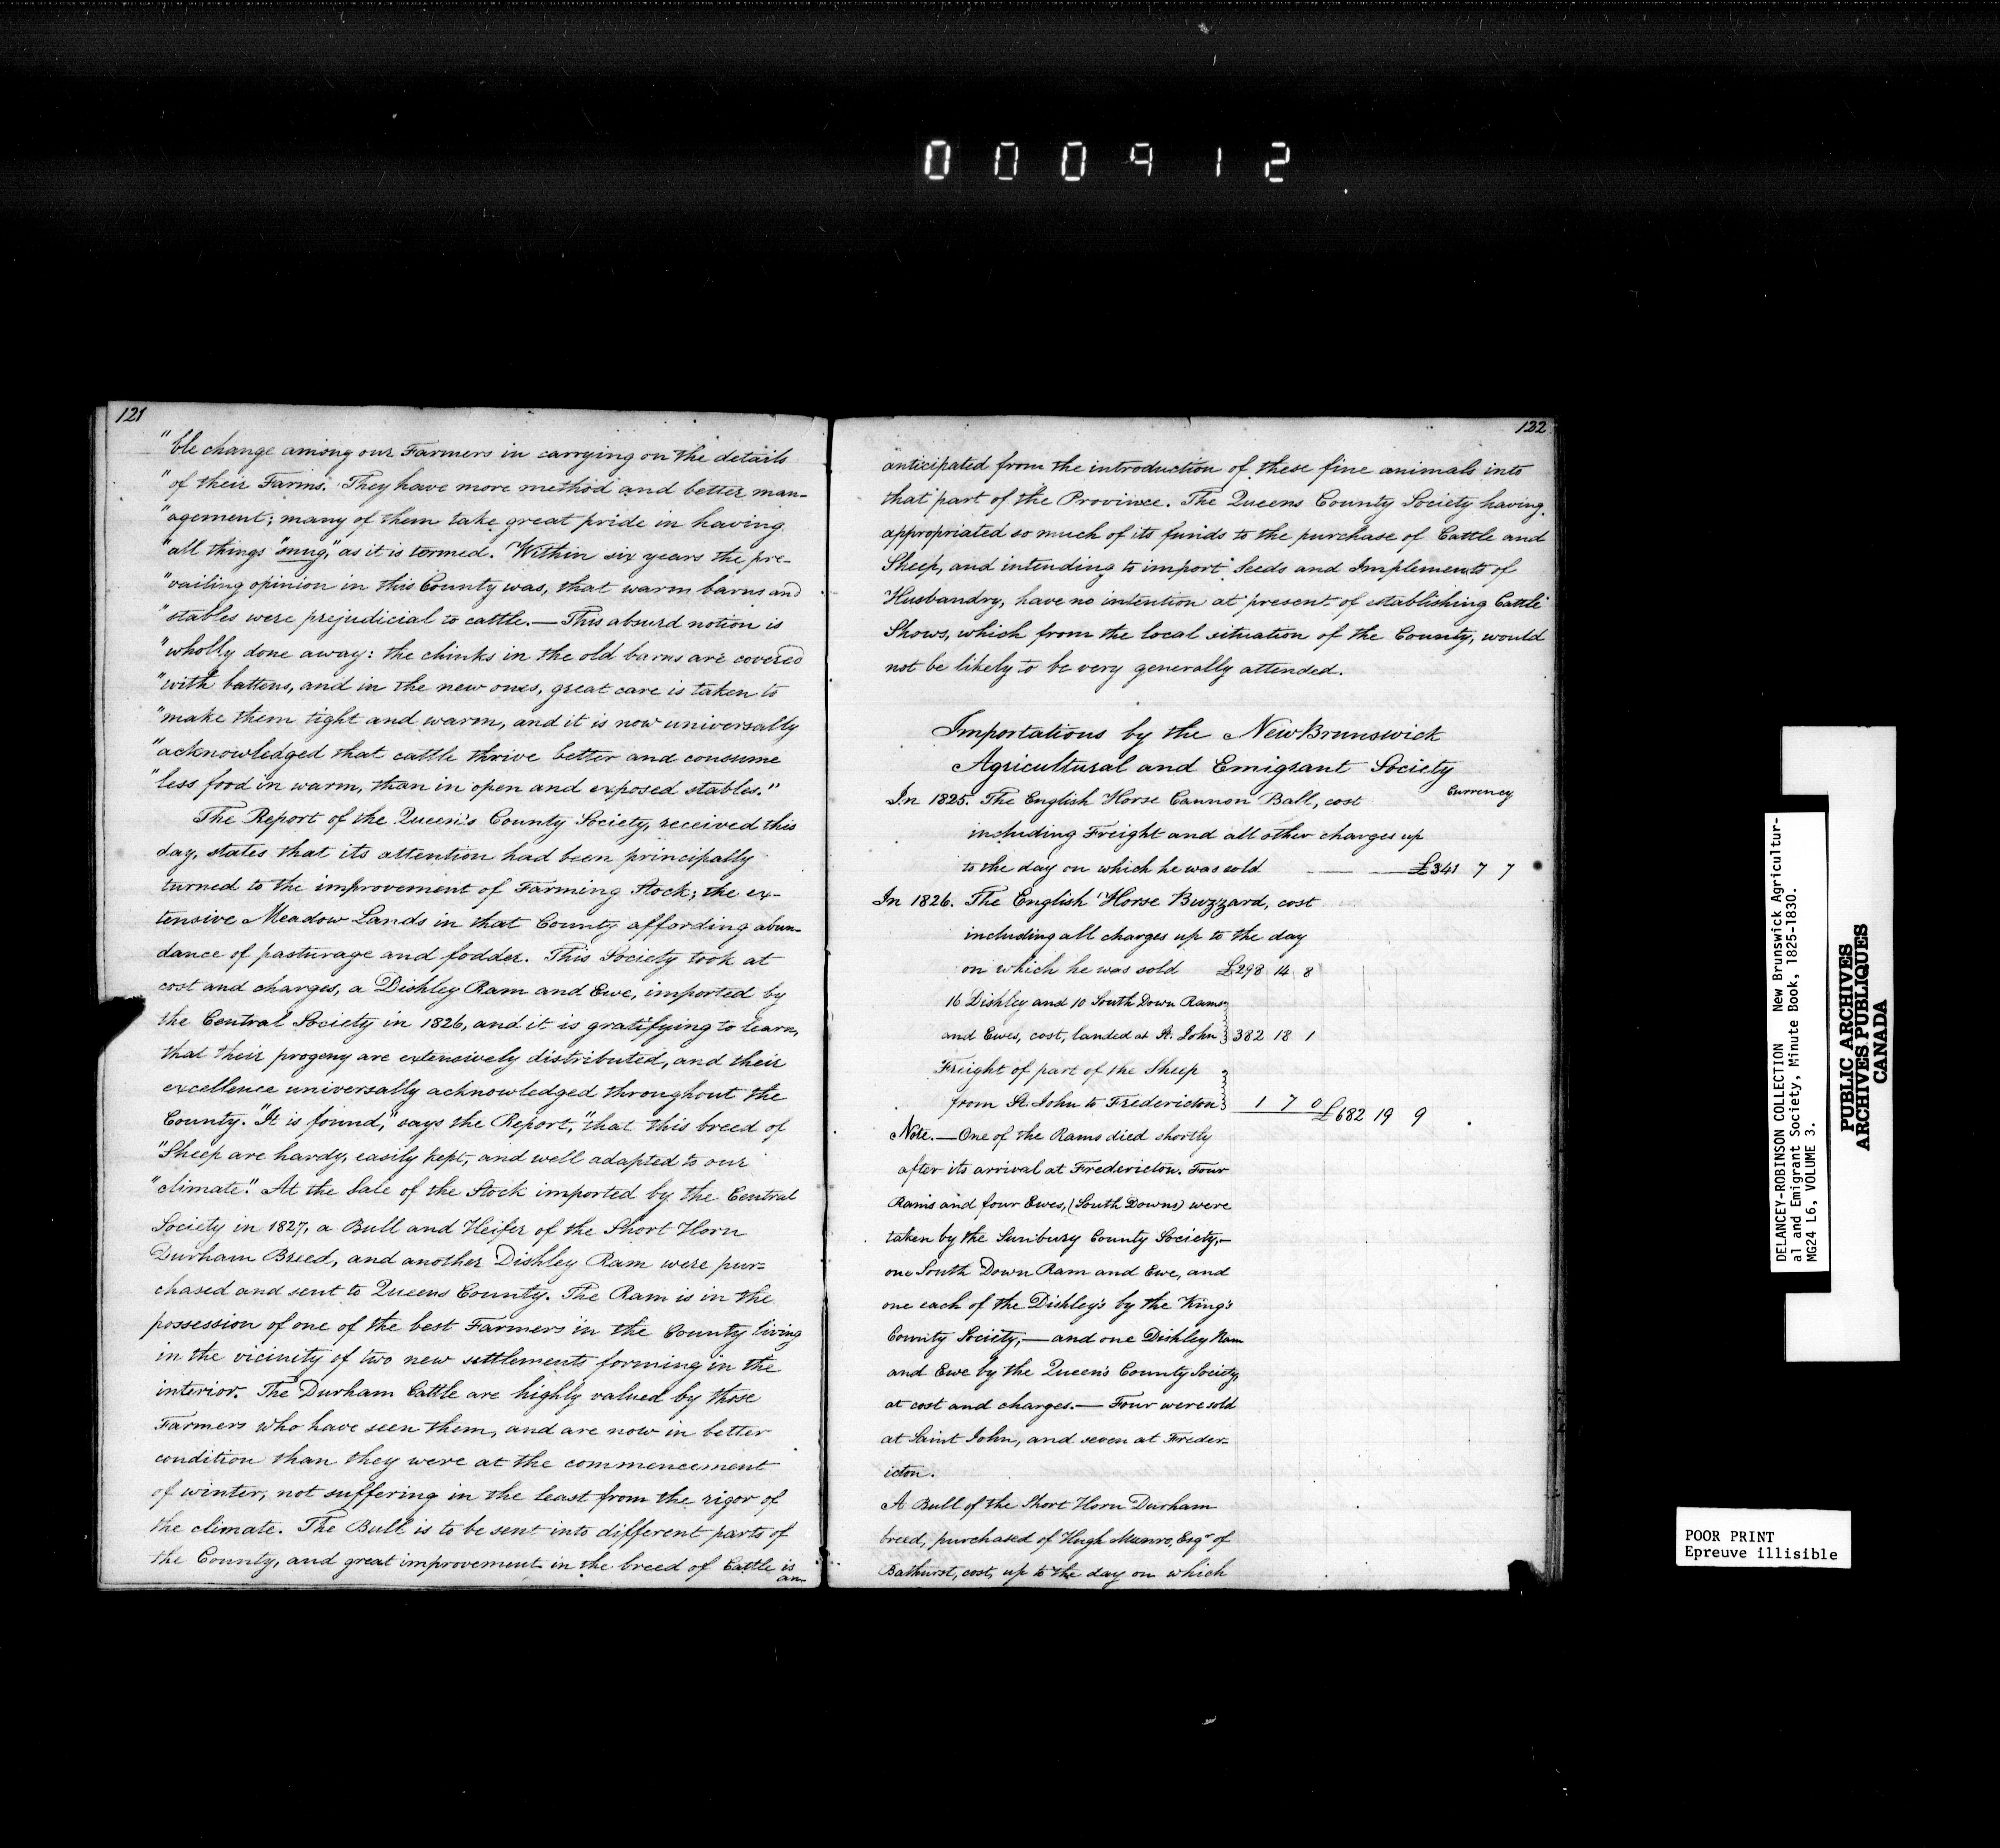 000912
121
"ble change among our Farmers in carrying on the details
"of their Farms. They have more method and better man-
"agement; many of them take great pride in having
"all things "snug," as it is termed. Within six years the pre-
"vailing opinion in this County was, that warm barns and
"stables were prejudicial to cattle. — This absurd notion is
"wholly done away: the chinks in the old barns are covered
"with battens, and in the new ones, great care is taken to
"make them tight and warm, and it is now universally
"acknowledged that cattle thrive better and consume
"less food in warm, than in open and exposed stables."
The Report of the Queen's County Society, received this
day, states that its attention had been principally
turned to the improvement of Farming Stock; the ex-
tensive Meadow Lands in that County affording abun-
dance of pasturage and fodder. This Society took at
cost and charges, a Dishley Ram and Ewe, imported by
the Central Society in 1826, and it is gratifying to learn,
that their progeny are extensively distributed, and their
excellence universally acknowledged throughout the
County. "It is found," says the Report, "that this breed of
"Sheep are hardy, easily kept, and well adapted to our
"climate." At the Sale of the Stock imported by the Central
Society in 1827, a Bull and Heifer of the Short Horn
Durham Breed, and another Dishley Ram were pur-
chased and sent to Queens County. The Ram is in the
possession of one of the best Farmers in the County living
in the vicinity of two new settlements forming in the
interior. The Durham Cattle are highly valued by those
Farmers who have seen them, and are now in better
condition than they were at the commencement
of winter, not suffering in the least from the rigor of
the climate. The Bull is to be sent into different parts of
the County, and great improvement in the breed of Cattle is
an-
122
anticipated from the introduction of these fine animals into
that part of the Province. The Queens County Society having
appropriated so much of its funds to the purchase of Cattle and
Sheep, and intending to import Seeds and Implements of
Husbandry, have no intention at present of establishing Cattle
Shows, which from the local situation of the County, would
not be likely to be very generally attended.
Importations by the New Brunswick
Agricultural and Emigrant Society
Currency
In 1825. The English Horse Cannon Ball, cost
including Freight and all other charges up
to the day on which he was sold — — £341 7 7
In 1826. The English Horse Buzzard, cost
including all charges up to the day
on which he was sold £298 14 8
16 Dishley and 10 South Down Rams
and Ewes, cost, landed at St. John } 382 18 1
Freight of part of the Sheep
from St. John to Fredericton } 1 7 0 £682 19 9
Note. — One of the Rams died shortly
after its arrival at Fredericton. Four
Rams and four Ewes, (South Downs) were
taken by the Sunbury County Society, —
one South Down Ram and Ewe, and
one each of the Dishley's by the King's
County Society; — and one Dishley Ram
and Ewe by the Queen's County Society,
at cost and charges. — Four were sold
at Saint John, and seven at Freder-
icton.
A Bull of the Short Horn Durham
breed, purchased of Hugh Munro, Esqr of
Bathurst, cost, up to the day on which
DELANCEY-ROBINSON COLLECTION New Brunswick Agricultur-
al and Emigrant Society, Minute Book, 1825-1830.
MG24 L6, VOLUME 3.
PUBLIC ARCHIVES
ARCHIVES PUBLIQUES
CANADA
POOR PRINT
Epreuve illisible